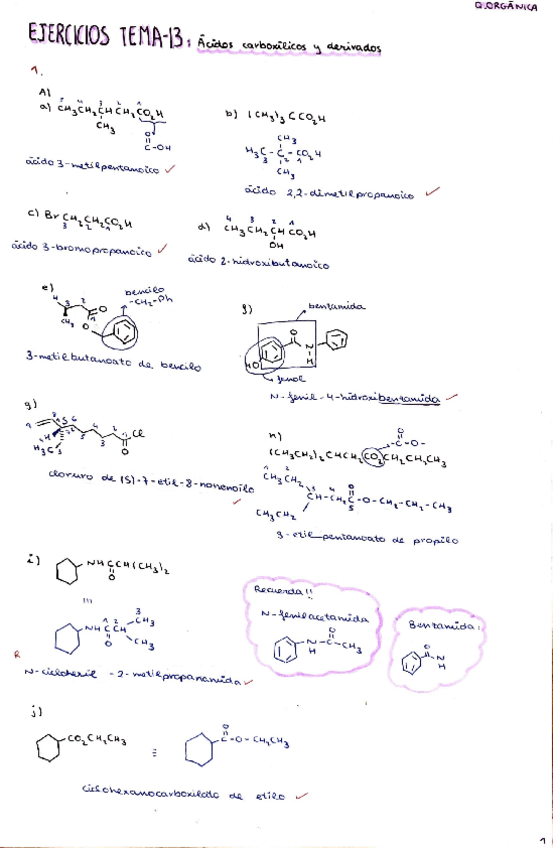 Q.ORGÁNICA
EJERCICIOS TEMA-13: Ácidos carboxílicos y derivados
1.
A)
a) CH3CH2CHCH2CO2H
CH3
O
C-OH
ácido 3-metilpentanoico ✓
b) (CH3)3CCO2H
CH3
H3C-C-CO2H
CH3
ácido 2,2-dimetilpropanoico ✓
c) BrCH2CH2CO2H
ácido 3-bromopropanoico ✓
d) CH3CH2CHCO2H
OH
ácido 2-hidroxibutanoico
e)
bencilo
-CH2-Ph
CH3
O
O
3-metilbutanoato de bencilo
bentamida
O
N
H
HO
fenol
N-fenil-4-hidroxibentamida ✓
g)
Cl
O
H
H3C
cloruro de (S)-7-etil-8-nonenoilo ✓
h)
O
-C-O-
(CH3CH2)2CHCH2CO2CH2CH2CH3
CH3CH2
CH-CH2C-O-CH2-CH2-CH3
O
CH3CH2
3-etilpentanoato de propilo
i)
NHCCH(CH3)2
O
NHCCH
O
CH3
CH3
R
N-ciclohexil-2-metilpropanamida ✓
Recuerda!!
N-fenilacetamida
N-C-CH3
H
O
Bentamida:
O
N
H
j)
CO2CH2CH3
≡
O
C-O-CH2CH3
ciclohexanocarboxilato de etilo ✓
1